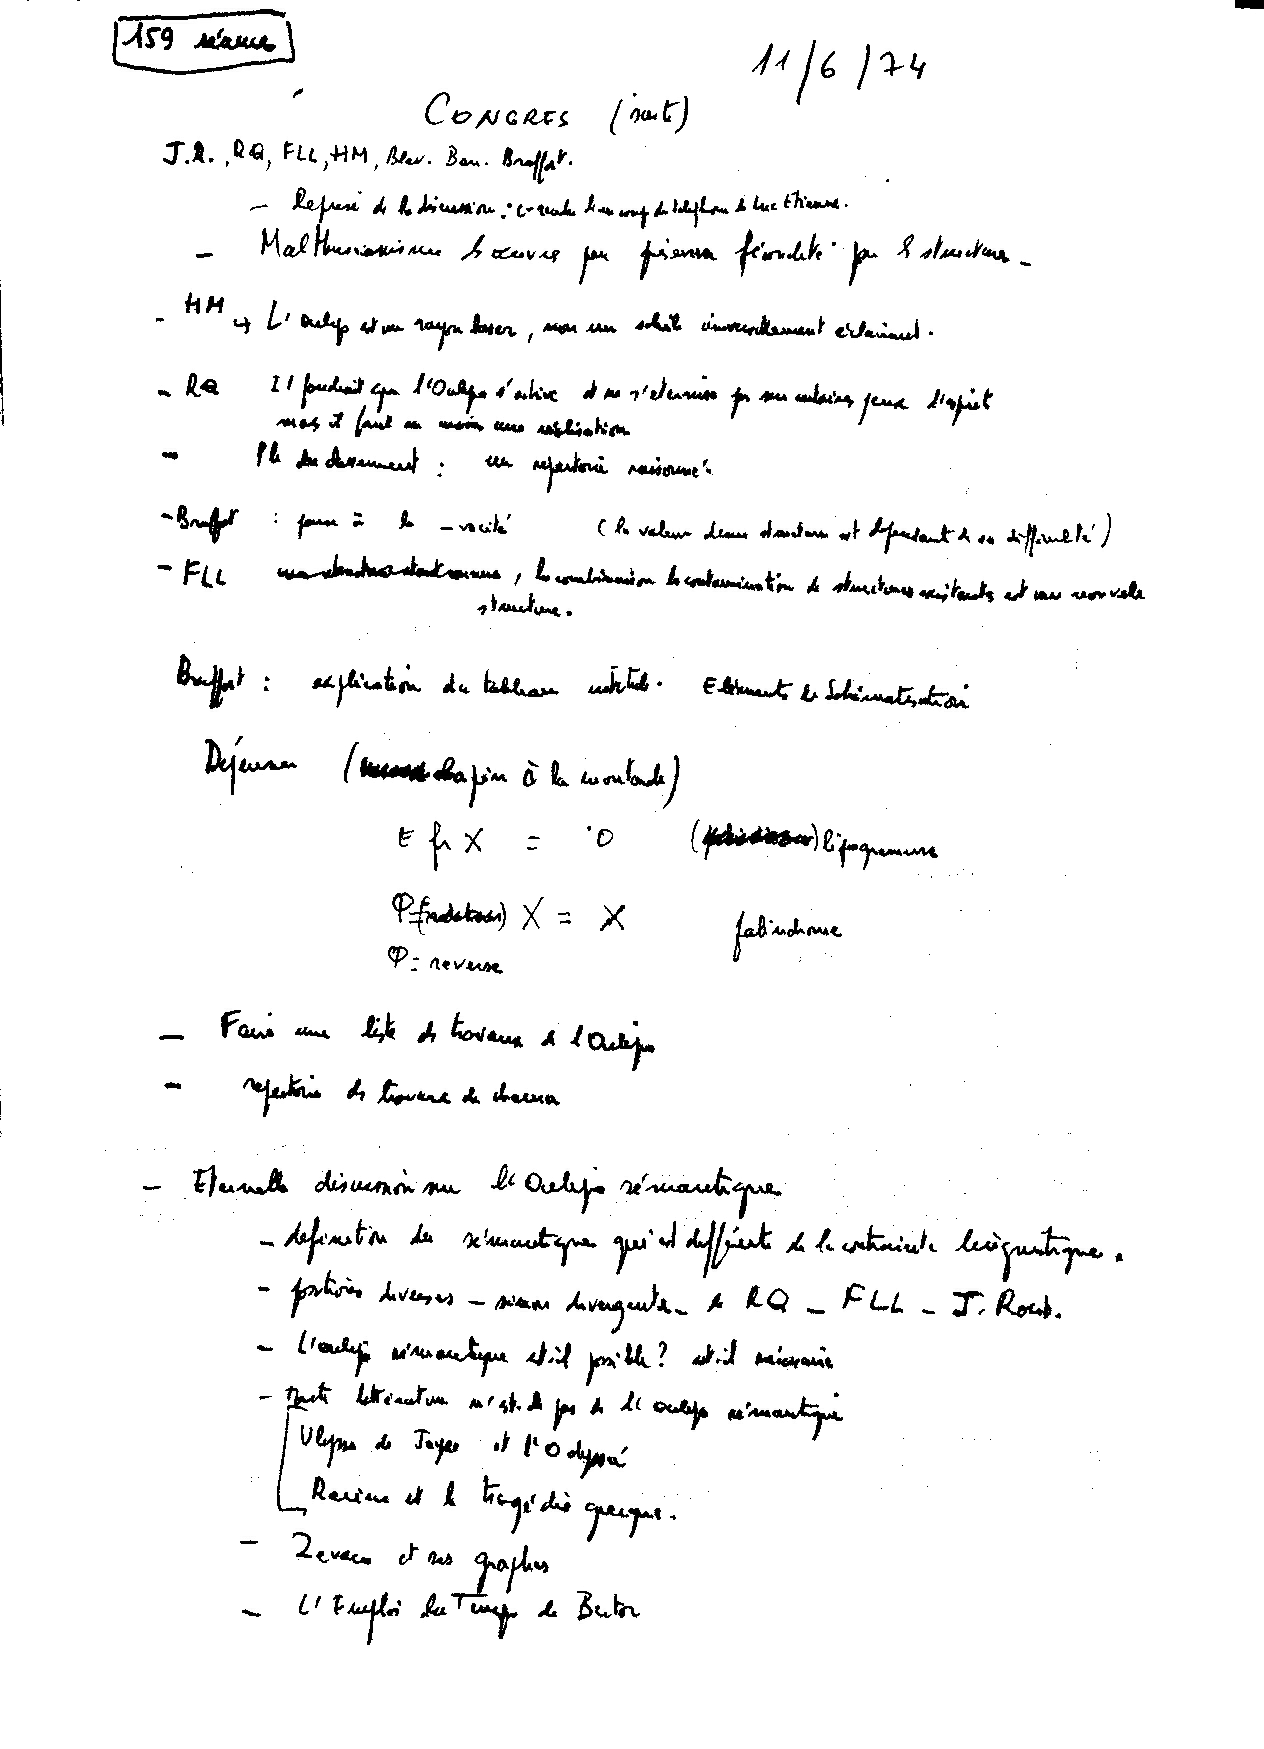 159 séance
11/6/74
CONGRES (suite)
J.R., RQ, FLL, HM, Blav. Ben. Braffort.
– Reprise de la discussion : coup de téléphone de Luc Etienne.
– Malthusianisme œuvre par fécondité par structure –
– HM → L'Oulipo est un rayon laser, non un soleil universellement éclairant.
– RQ Il faudrait que l'Oulipo s'active et ne s'éternise pas jeux d'esprit
mais il faut au moins une réalisation
– Pb du classement : un répertoire raisonné
– Braffort : – vocité (la valeur d'une structure est dépendant de sa difficulté)
– FLL , la combinaison la contamination de structures existantes est une nouvelle
structure.
Braffort : explication du tableau intitulé. Eléments de Schématisation
Déjeuner ( lapin à la moutarde)
E X = 0 ( ) lipogramme
φ X = X palindrome
φ = reverse
– Faire une liste des travaux de l'Oulipo
– répertoire des travaux de chacun
– Eternelle discussion sur l'Oulipo sémantique
– définition du sémantique qui est différente de la contrainte linguistique.
– positions diverses – sinon divergentes – de RQ – FLL – J. Roub.
– L'oulipo sémantique est-il possible? est-il nécessaire
– Toute littérature n'est-elle pas de l'Oulipo sémantique
Ulysse de Joyce et l'Odyssée
Racine et la tragédie grecque.
– Zevaco et ses graphes
– L'Emploi du Temps de Butor